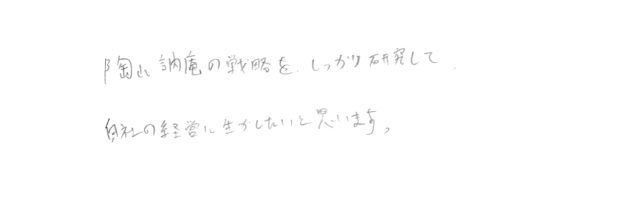 陶山訥庵の戦略を、しっかり研究して、
自社の経営に生かしたいと思います。